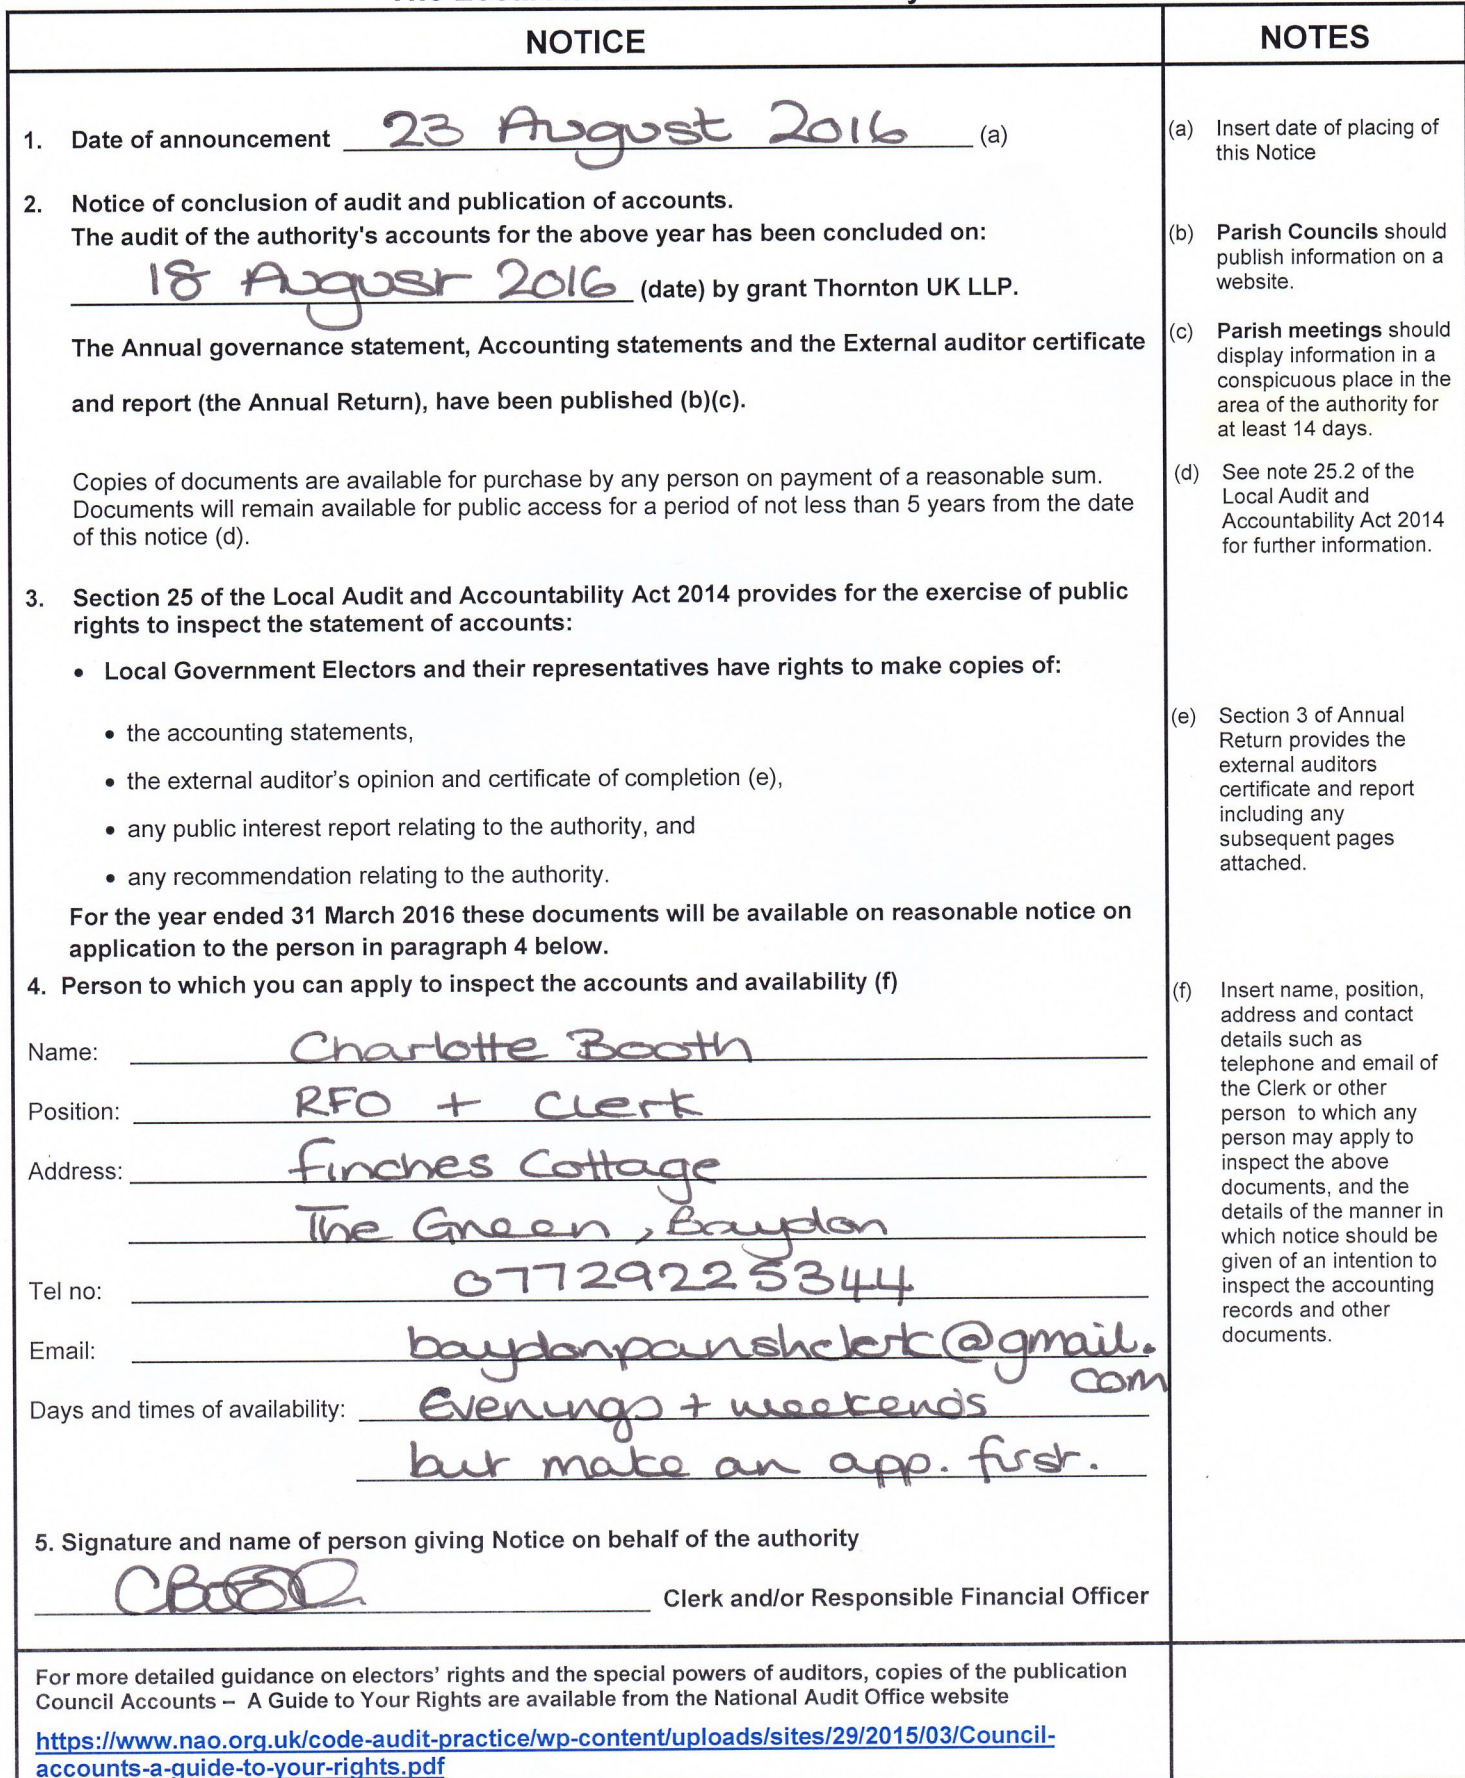 NOTICE
1. Date of announcement 23 August 2016 (a)
2. Notice of conclusion of audit and publication of accounts.
The audit of the authority's accounts for the above year has been concluded on:
18 August 2016 (date) by grant Thornton UK LLP.
The Annual governance statement, Accounting statements and the External auditor certificate
and report (the Annual Return), have been published (b)(c).
Copies of documents are available for purchase by any person on payment of a reasonable sum.
Documents will remain available for public access for a period of not less than 5 years from the date
of this notice (d).
3. Section 25 of the Local Audit and Accountability Act 2014 provides for the exercise of public
rights to inspect the statement of accounts:
• Local Government Electors and their representatives have rights to make copies of:
• the accounting statements,
• the external auditor's opinion and certificate of completion (e),
• any public interest report relating to the authority, and
• any recommendation relating to the authority.
For the year ended 31 March 2016 these documents will be available on reasonable notice on
application to the person in paragraph 4 below.
4. Person to which you can apply to inspect the accounts and availability (f)
Name: Charlotte Booth
Position: RFO + Clerk
Address: Finches Cottage
The Green, Baydon
Tel no: 07729225344
Email: baydonparishclerk@gmail.
com
Days and times of availability: Evenings + weekends
but make an app. first.
5. Signature and name of person giving Notice on behalf of the authority
CBooth Clerk and/or Responsible Financial Officer
For more detailed guidance on electors' rights and the special powers of auditors, copies of the publication
Council Accounts – A Guide to Your Rights are available from the National Audit Office website
https://www.nao.org.uk/code-audit-practice/wp-content/uploads/sites/29/2015/03/Council-
accounts-a-guide-to-your-rights.pdf
NOTES
(a) Insert date of placing of
this Notice
(b) Parish Councils should
publish information on a
website.
(c) Parish meetings should
display information in a
conspicuous place in the
area of the authority for
at least 14 days.
(d) See note 25.2 of the
Local Audit and
Accountability Act 2014
for further information.
(e) Section 3 of Annual
Return provides the
external auditors
certificate and report
including any
subsequent pages
attached.
(f) Insert name, position,
address and contact
details such as
telephone and email of
the Clerk or other
person to which any
person may apply to
inspect the above
documents, and the
details of the manner in
which notice should be
given of an intention to
inspect the accounting
records and other
documents.